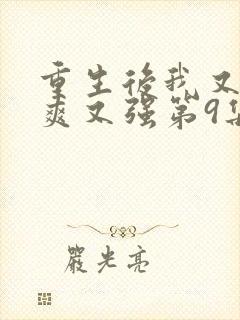 重生後我又
爽又强第9集
嚴光亮